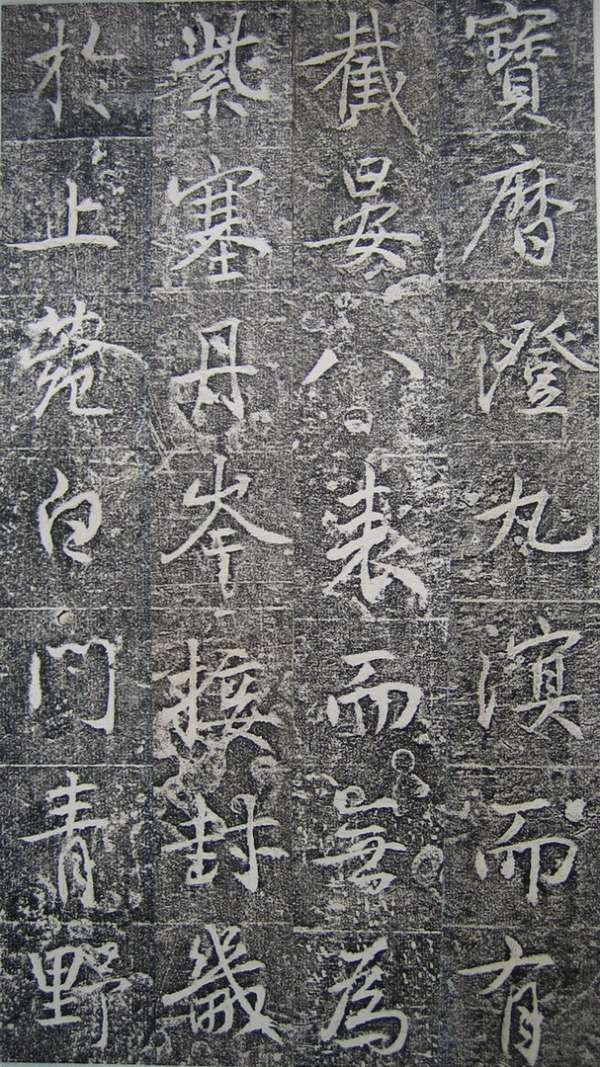 寶曆澄九溟而有
截晏八表而無為
紫塞丹岑接封畿
於止白門青野